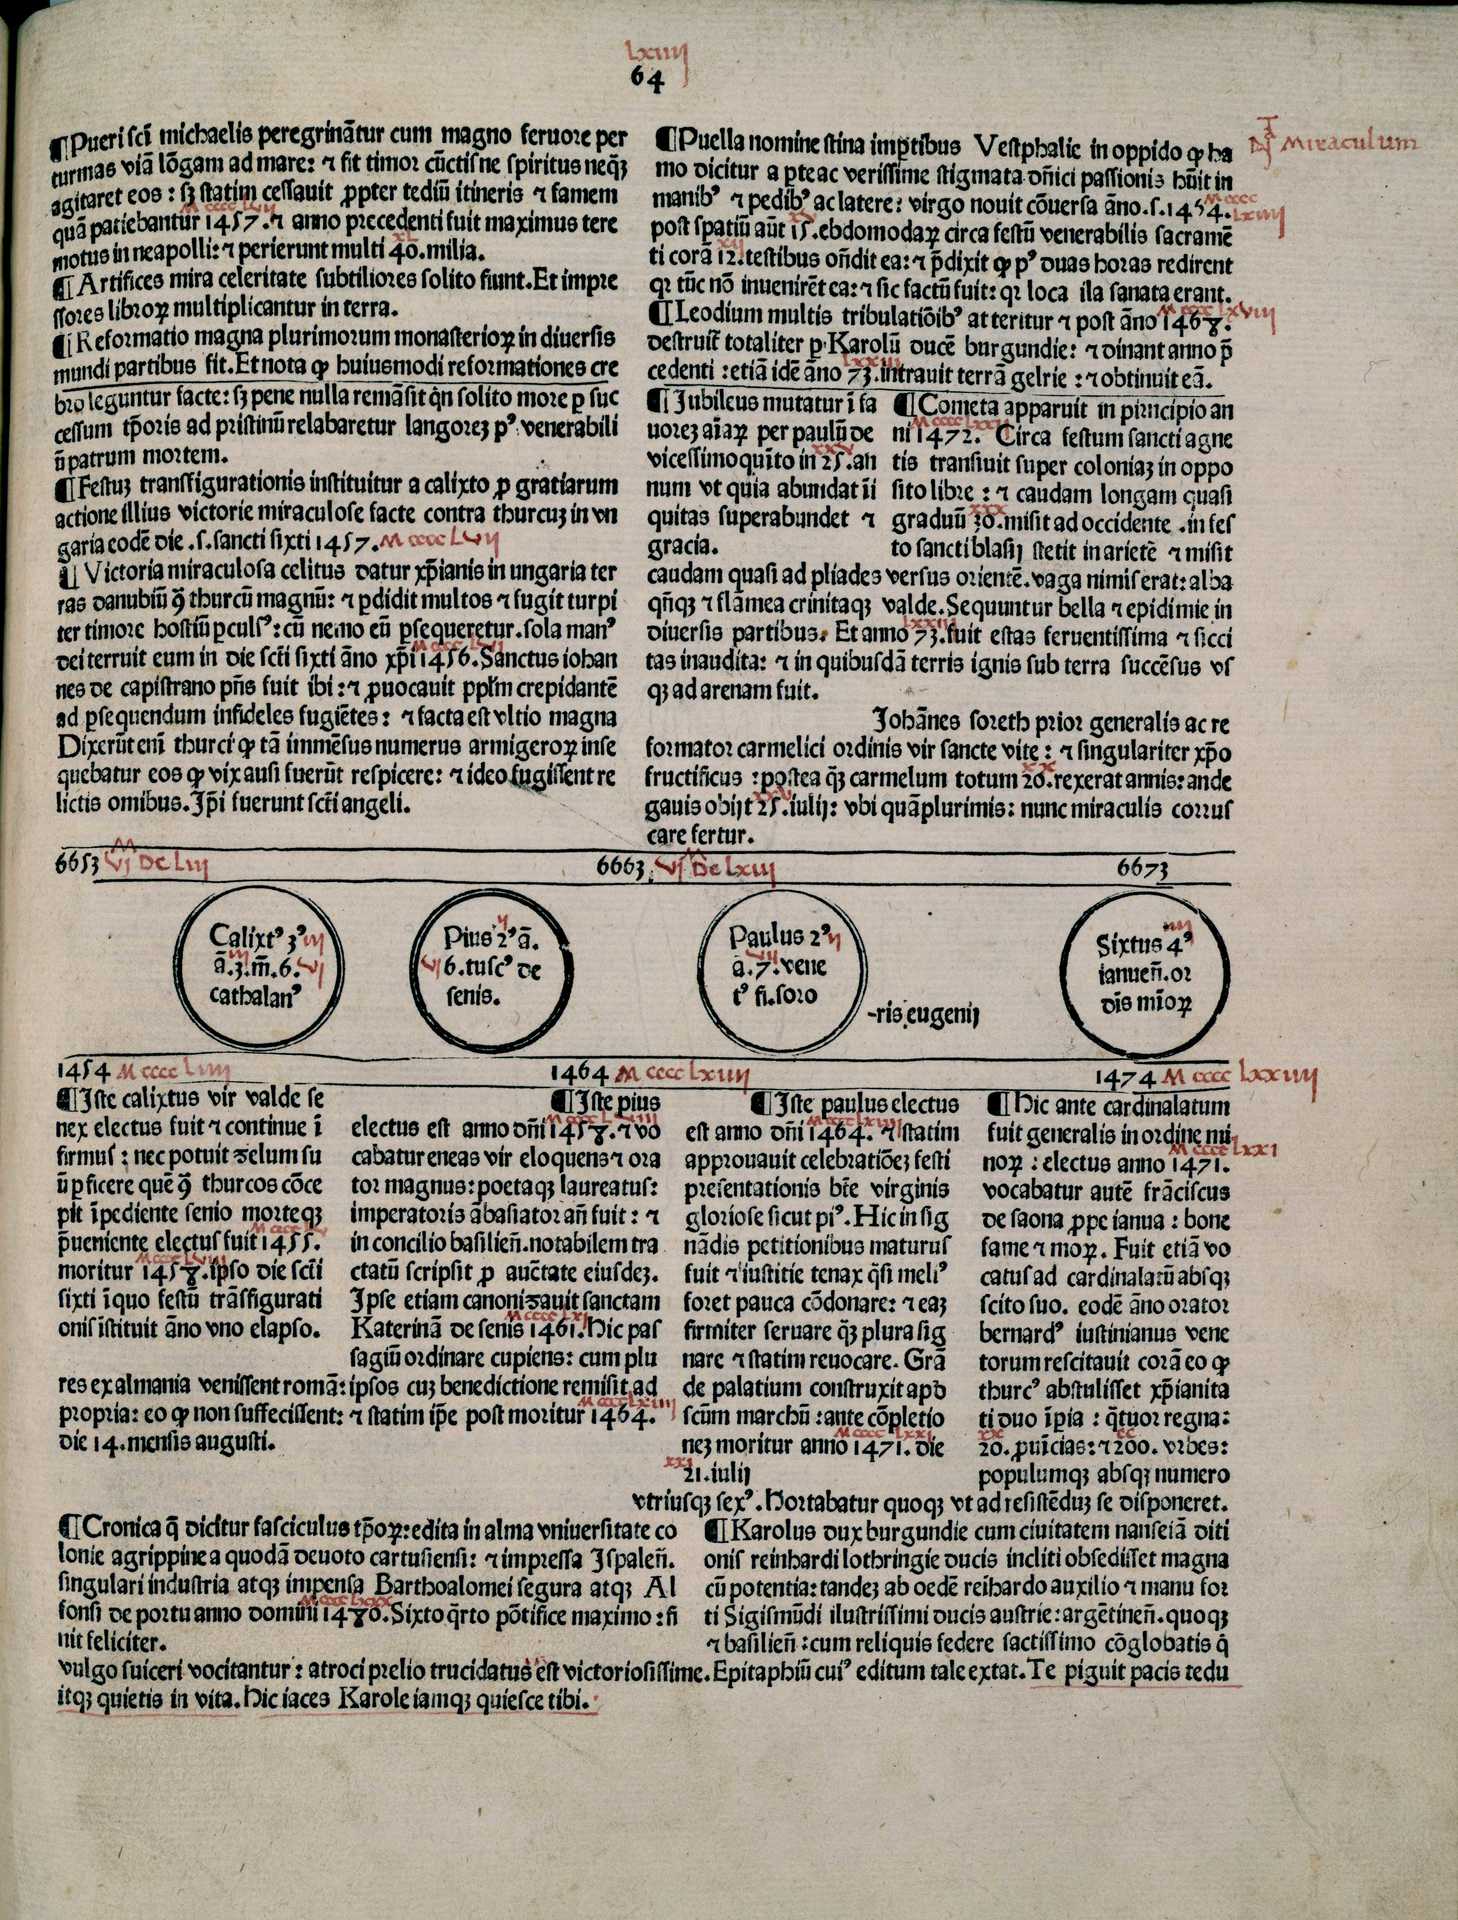 lxiiij
64
¶Pueri scī michaelis peregrinātur cum magno feruore per
turmas viā lōgam ad mare: ⁊ fit timor cūctis ne spiritus neqȝ
agitaret eos: sȝ statim cessauit ꝓpter tediū itineris ⁊ famem
quā patiebantur 1457. ⁊ anno precedenti fuit maximus tere
motus in neapolli: ⁊ perierunt multi 40. milia.
¶Artifices mira celeritate subtiliores solito fiunt. Et impre
ssores libroꝝ multiplicantur in terra.
¶Reformatio magna plurimorum monasterioꝝ in diuersis
mundi partibus fit. Et nota ꝙ huiusmodi reformationes cre
bro leguntur facte: sȝ pene nulla remāsit qͥn solito more ꝑ suc
cessum tꝑoris ad pristinū relabaretur langoreȝ pꝰ venerabili
ū patrum mortem.
¶Festuȝ transfigurationis instituitur a calixto ꝓ gratiarum
actione illius victorie miraculose facte contra thurcuȝ in vn
garia eodē die .s. sancti sixti 1457. M cccc Lvij
¶Victoria miraculosa celitus datur xp̄ianis in ungaria ter
ras danubiū ꝯ̄ thurcū magnū: ⁊ ꝑdidit multos ⁊ fugit turpi
ter timore hostiū ꝑculsꝰ: cū nemo eū ꝑsequeretur. sola manꝰ
dei terruit eum in die scti sixti āno xp̄i 1456. Sanctus iohan
nes de capistrano pn̄s fuit ibi: ⁊ ꝓuocauit pplm̄ crepidantē
ad ꝑsequendum infideles fugiētes: ⁊ facta est vltio magna
Dixerūt enī thurci ꝙ tā immēsus numerus armigeroꝝ inse
quebatur eos ꝙ vix ausi fuerūt respicere: ⁊ ideo fugissent re
lictis omibus. Ip̄i fuerunt scti angeli.
¶Puella nomine stina im ꝑtibus Vestphalie in oppido ꝙ ha
mo dicitur a ꝑte ac verissime stigmata dn̄ici passionis hūit in
manibꝰ ⁊ pedibꝰ ac latere: virgo nouit cōuersa āno .s. 1454.
post spatiū aūt 15. ebdomodaꝝ circa festū venerabilis sacramē
ti corā 12. testibus on̄dit ea: ⁊ p̄dixit ꝙ pꝰ duas horas redirent
qꝛ tūc nō inuenirēt ea: ⁊ sic factū fuit: qꝛ loca ila sanata erant.
¶Leodium multis tribulatiōibꝰ at teritur ⁊ post āno 1468.
destruit̄ totaliter ꝑ Karolū ducē burgundie: ⁊ dinant anno p̄
cedenti: etiā idē āno 73. intrauit terrā gelrie: ⁊ obtinuit eā.
Miraculum
¶Iubileus mutatur ī fa
uoreȝ aīaꝝ per paulū de
vicessimoquīto in 25. an
num vt quia abundat īi
quitas superabundet ⁊
gracia.
¶Cometa apparuit in pirncipio an
ni 1472. Circa festum sancti agne
tis transiuit super coloniaȝ in oppo
sito libre: ⁊ caudam longam quasi
graduū 30. misit ad occidente .in fes
to sancti blasij stetit in arietē ⁊ misit
caudam quasi ad pliades versus orientē. vaga nimis erat: alba
qn̄qȝ ⁊ flāmea crinitaqȝ valde. Sequuntur bella ⁊ epidimie in
diuersis partibus. Et anno 73. fuit estas feruentissima ⁊ sicci
tas inaudita: ⁊ in quibusdā terris ignis sub terra succēsus vs
qȝ ad arenam fuit.
Johānes soreth prior generalis ac re
formator carmelici ordinis vir sancte vite: ⁊ singulariter xp̄o
fructificus: postea qȝ carmelum totum 20. rexerat annis: ande
gauis obijt 25. iulij: vbi quāplurimis: nunc miraculis corrus
care fertur.
6653 vj M De Liij
6663 vj M De Lxiij
6673
Calixtꝰ 3ꝰ iij
ā. 3. m̄. 6. vj
cathalanꝰ
Pius 2ꝰ ā.
vj 6. tuscꝰ de
senis.
Paulus 2ꝰ ij
ā. 7. vene
tꝰ fi. soro
-ris eugenij
Sixtus 4ꝰ
ianueñ. or
dīs mīoꝝ
1454 M cccc Liiij
1464 M cccc Lxiiij
1474 M cccc Lxxiiij
¶Iste calixtus vir valde se
nex electus fuit ⁊ continue ī
firmus: nec potuit zelum su
ū ꝑficere quē ꝯ̄ thurcos cōce
pit īpediente senio morteqȝ
p̄ueniente electus fuit 1455.
moritur 1458. ipso die scti
sixti īquo festū trāsfigurati
onis īstituit āno vno elapso.
¶Iste pius
electus est anno dn̄i 1458. ⁊ vo
cabatur eneas vir eloquens ⁊ ora
tor magnus: poetaqȝ laureatus:
imperatoris ābasiator añ fuit: ⁊
in concilio basilieñ. notabilem tra
ctatū scripsit ꝓ auctate eiusdeȝ.
Ipse etiam canonizauit sanctam
Katerinā de senis 1461. Hic pas
sagiū ordinare cupiens: cum plu
res ex almania venissent romā: ipsos cuȝ benedictione remisit ad
propria: eo ꝙ non suffecissent: ⁊ statim ip̄e post moritur 1464.
die 14. mensis augusti.
¶Iste paulus electus
est anno dn̄i 1464. ⁊ statim
approuauit celebratiōeȝ festi
presentationis bt̄e virginis
gloriose sicut piꝰ. Hic in sig
nādis petitionibus maturus
fuit ⁊ iustitie tenax qͥsi meliꝰ
foret pauca cōdonare: ⁊ eaȝ
firmiter seruare qȝ plura sig
nare ⁊ statim reuocare. Grā
de palatium construxit apd
scūm marchū: ante cōpletio
neȝ moritur anno 1471. die
21. iulij
¶Hic ante cardinalatum
fuit generalis in ordine mi
noꝝ: electus anno 1471.
vocabatur autē frāciscus
de saona ꝓpe ianua: bone
fame ⁊ moꝝ. Fuit etiā vo
catus ad cardinalatū absqȝ
scito suo. eodē āno orator
bernardꝰ iustinianus vene
torum rescitauit corā eo ꝙ
thurcꝰ abstulisset xp̄ianita
ti duo īpia: qͣtuor regna:
20. ꝓuīcias: ⁊ 200. vrbes:
populumqȝ absqȝ numero
vtriusqȝ sexꝰ. Hortabatur quoqȝ vt ad resistēduȝ se disponeret.
¶Cronica q̄ dicitur fasciculus tꝑoꝝ: edita in alma vniuersitate co
lonie agrippine a quodā deuoto cartusiensi: ⁊ impressa Ispaleñ.
singulari industria atqȝ impensa Barthoalomei segura atqȝ Al
fonsi de portu anno domini 1480. Sixto qͣrto pōtifice maximo: fi
nit feliciter.
¶Karolus dux burgundie cum ciuitatem nanseiā diti
onis reinhardi lothringie ducis incliti obsedisset magna
cū potentia: tandeȝ ab oedē reihardo auxilio ⁊ manu for
ti Sigismūdi ilustrissimi ducis austrie: argētineñ. quoqȝ
⁊ basilieñ: cum reliquis federe sactissimo cōglobatis q̄
vulgo suiceri vocitantur: atroci prelio trucidatus est victoriosissime. Epitaphiū cuiꝰ editum tale extat. Te piguit pacis tedu
itqȝ quietis in vita. Hic iaces Karole iamqȝ quiesce tibi.